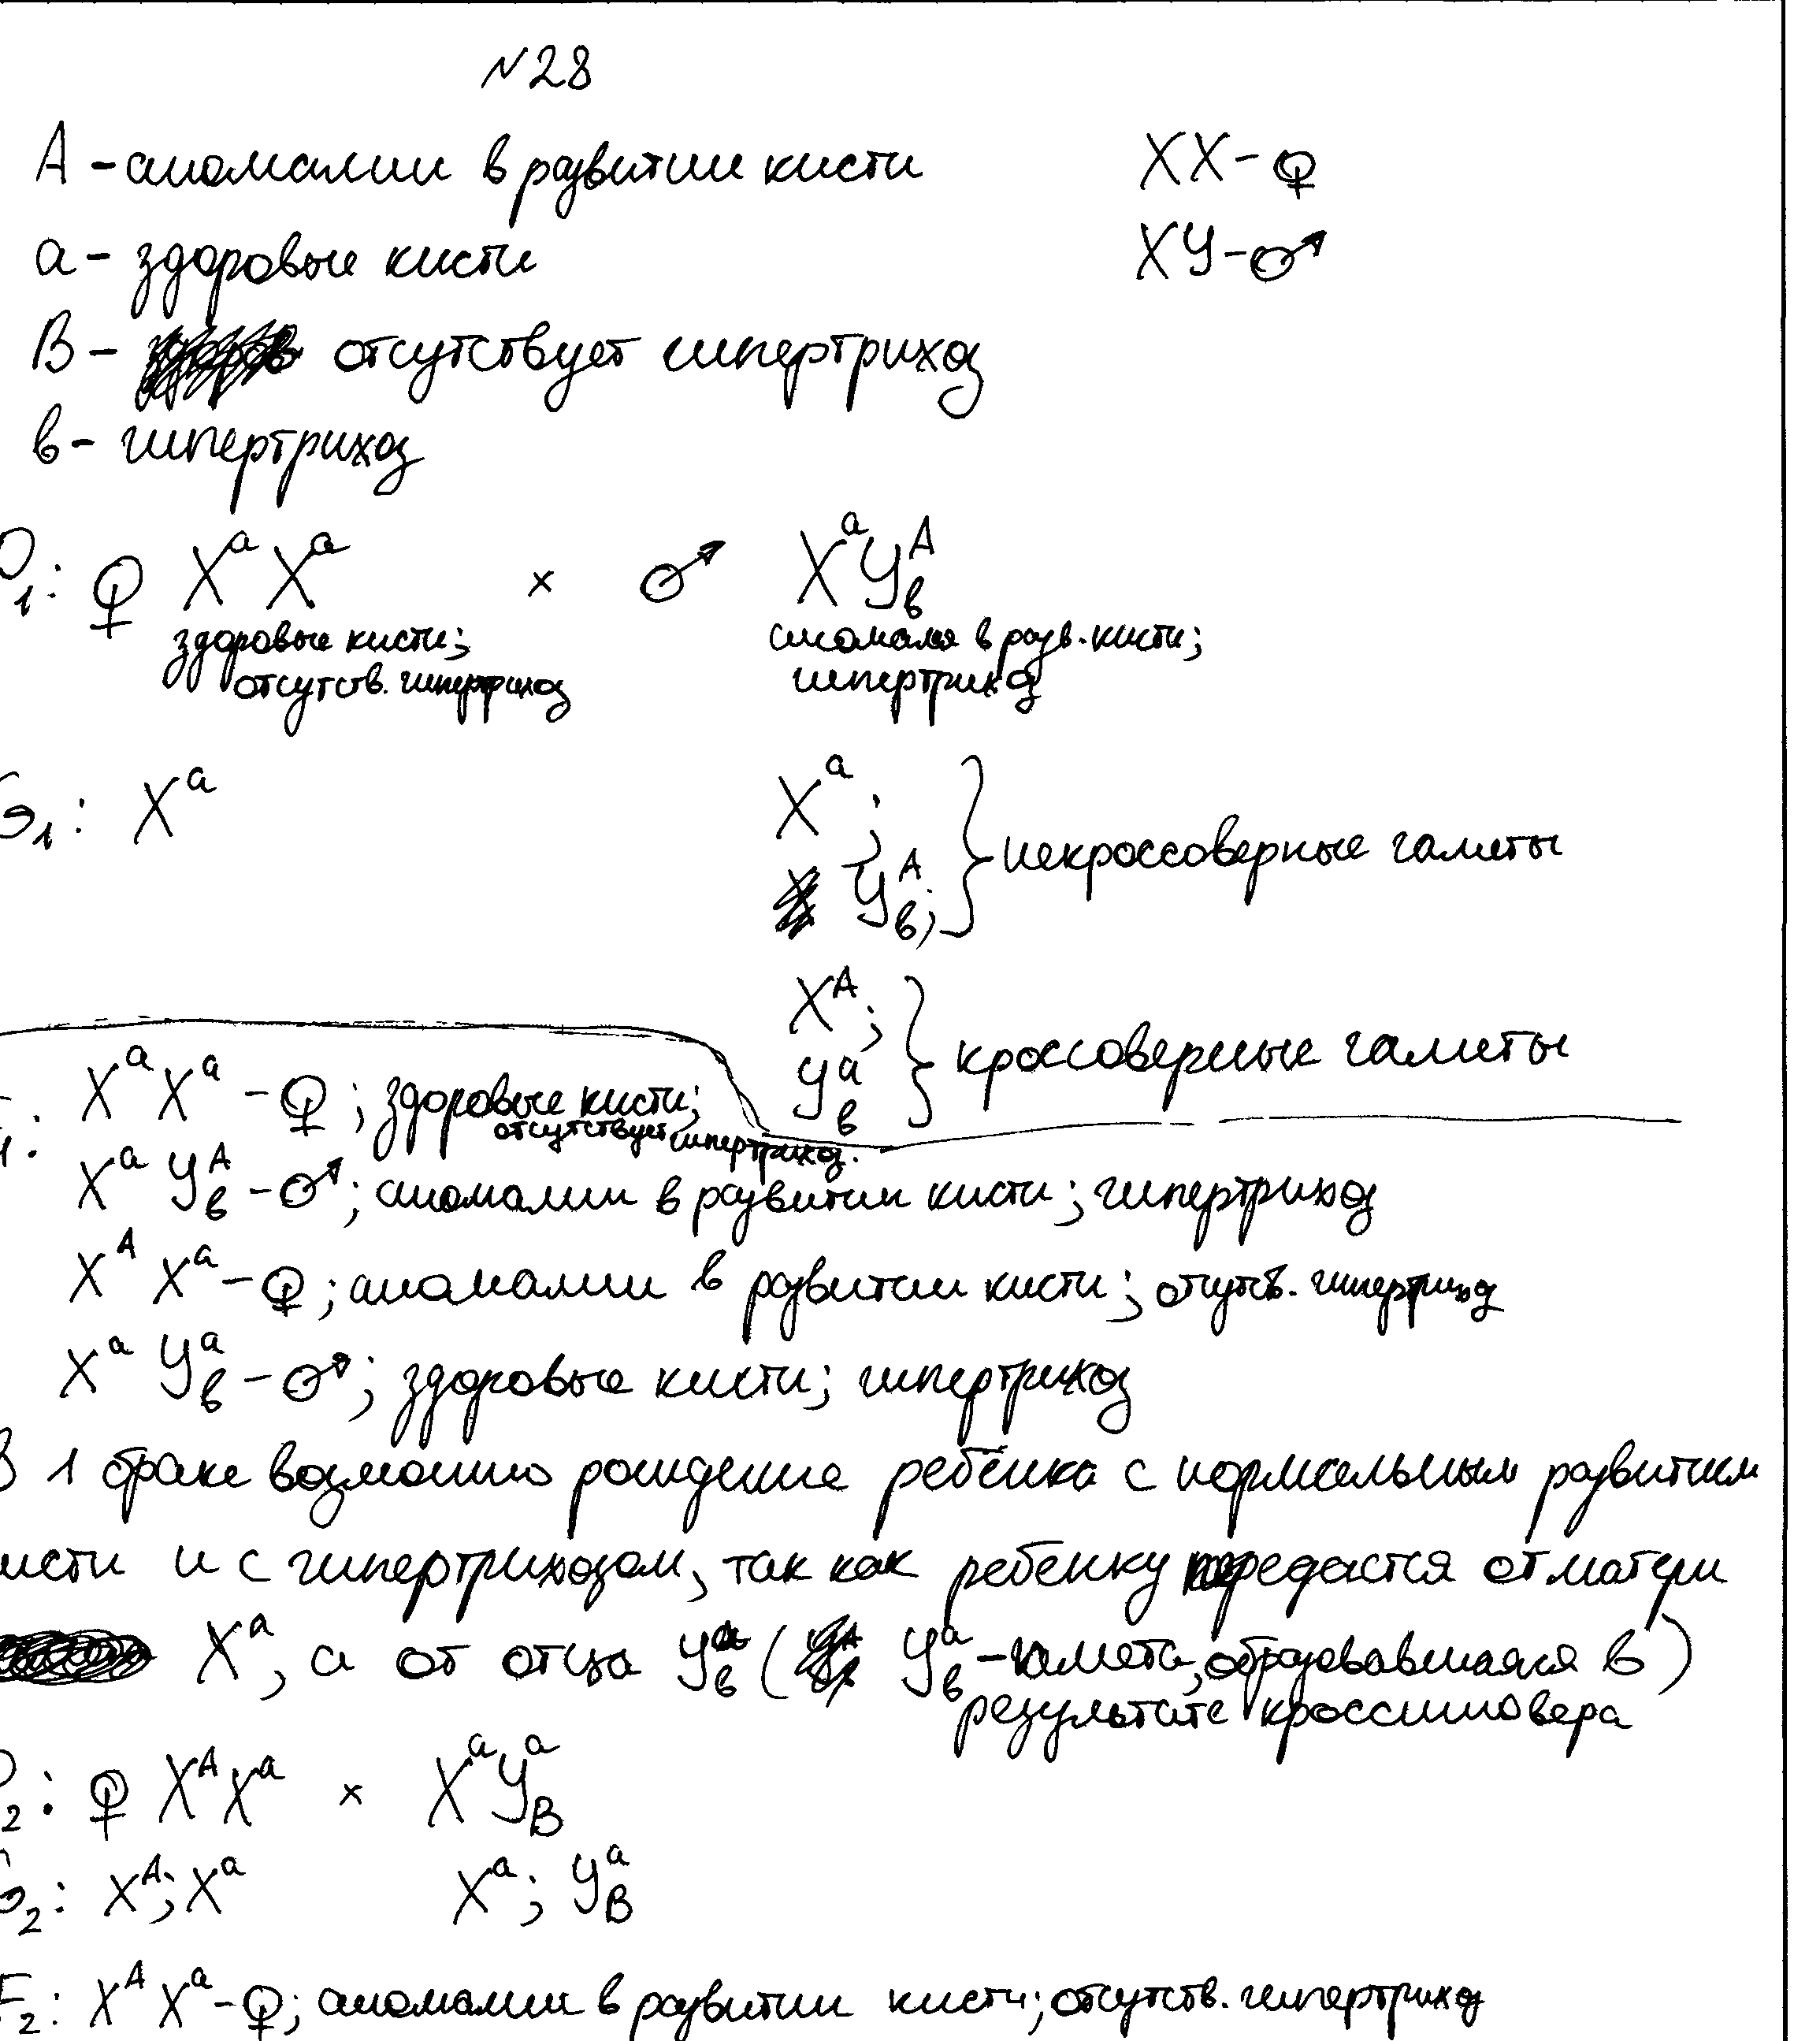 №28
А - аномалии в развитии кисти XX - ♀
а - здоровые кисти XY - ♂
В - отсутствует гипертрихоз
в - гипертрихоз
P₁: ♀ XᵃXᵃ × ♂ XᵃYᴬв
здоровые кисти; аномалия в разв. кисти;
отсутств. гипертрихоз гипертрихоз
G₁: Xᵃ Xᵃ;
Yᴬв; } некроссоверные гаметы
Xᴬ;
Yᵃв } кроссоверные гаметы
F₁: XᵃXᵃ - ♀; здоровые кисти;
отсутствует гипертрихоз.
XᵃYᴬв - ♂; аномалии в развитии кисти; гипертрихоз
XᴬXᵃ - ♀; аномалии в развитии кисти; отсутв. гипертрихоз
XᵃYᵃв - ♂; здоровые кисти; гипертрихоз
В 1 браке возможно рождение ребёнка с нормальным развитием
кисти и с гипертрихозом, так как ребенку передастся от матери
Xᵃ, а от отца Yᵃв ( Yᵃв - гамета, образовавшаяся в
результате кроссинговера)
P₂: ♀ XᴬXᵃ × XᵃYᵃВ
G₂: Xᴬ; Xᵃ Xᵃ; YᵃВ
F₂: XᴬXᵃ - ♀; аномалии в развитии кисти; отсутств. гипертрихоз